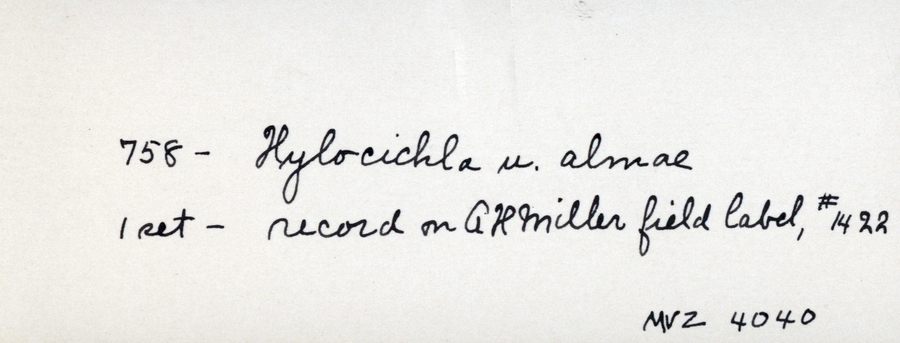 758 - Hylocichla u. almae
1 set - record on AHMiller field label, #1422
MVZ 4040